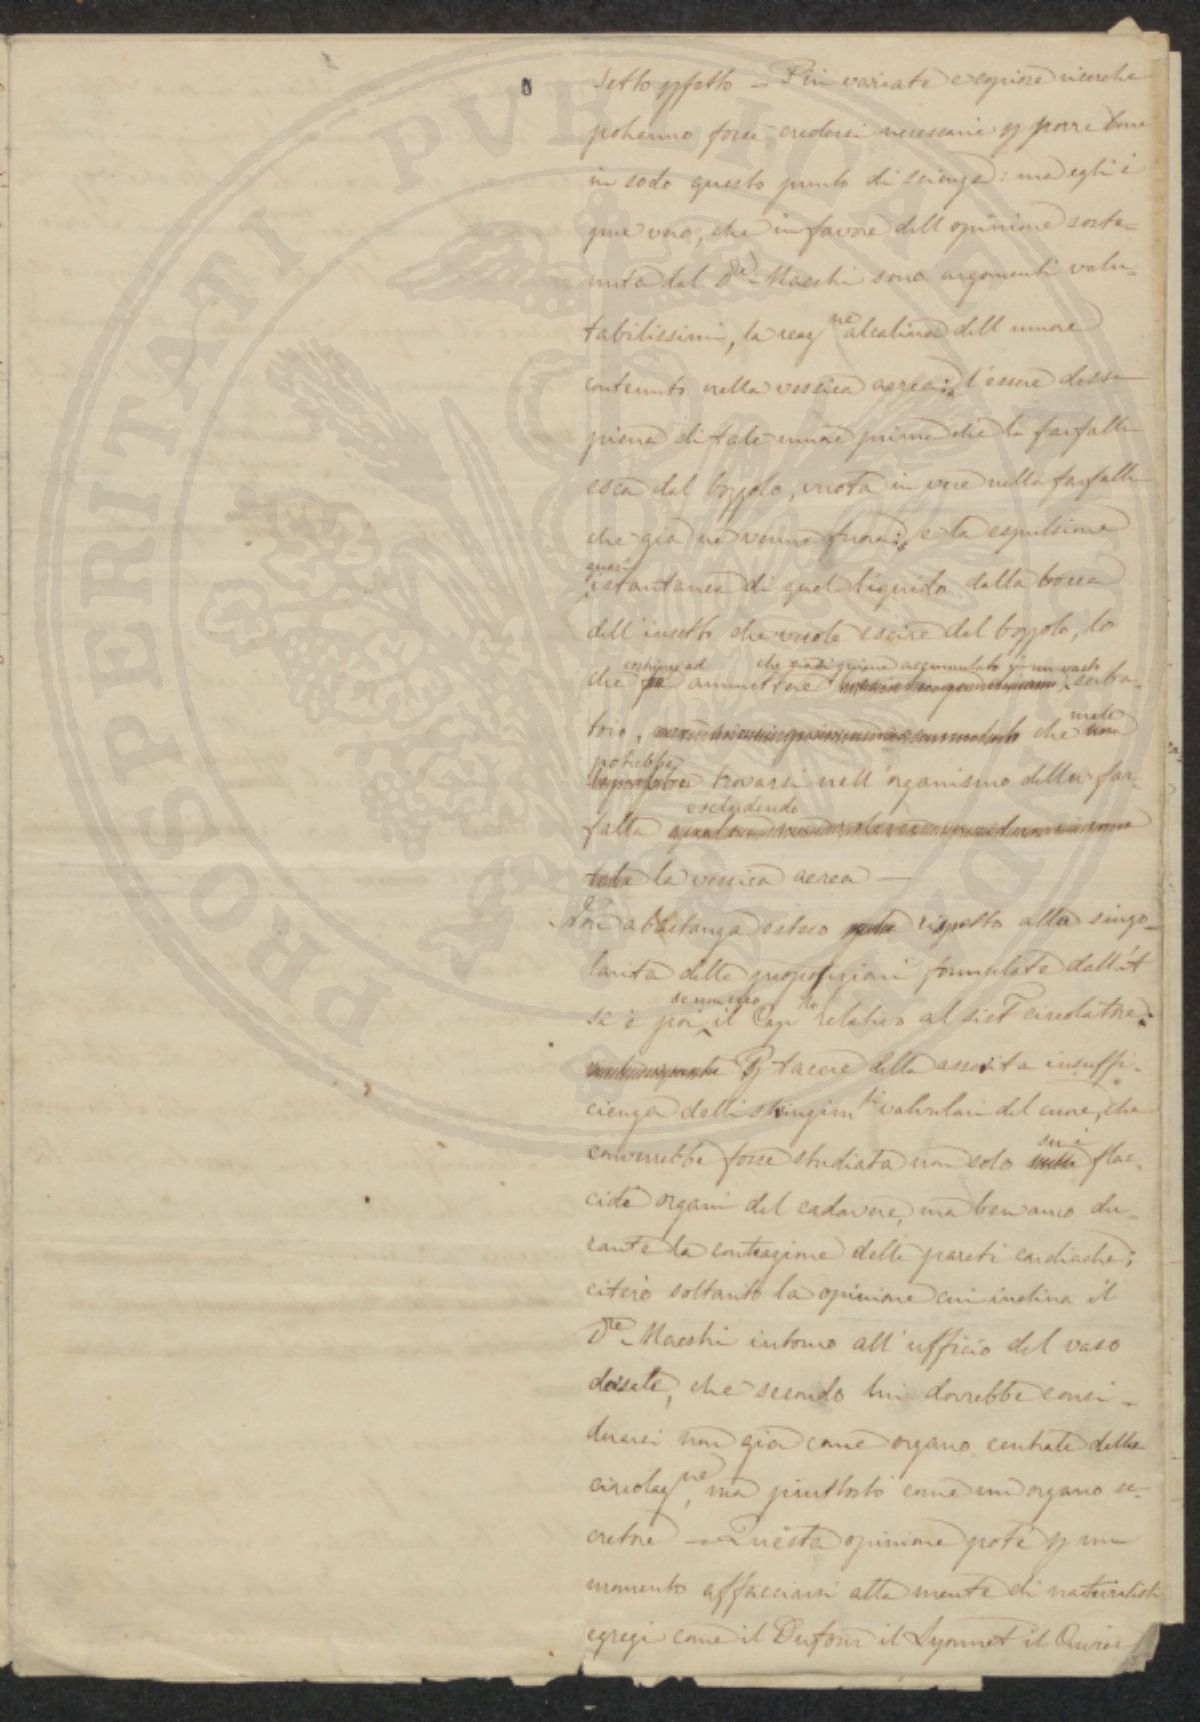 detto effetto – Più variate e copiose ricerche
potranno forse credersi necessarie p porre bene
in sodo questo punto di scienza: ma egli è
pur vero, che in favore dell opinione soste-
nuta dal D.re Maestri sono argomenti valu-
tabilissimi, la reaz.ne alcalina dell umore
contenuto nella vessica aerea; l'essere dessa
piena di tale umore prima che la farfalla
esca dal bozzolo, vuota in vece nella farfalla
che già ne venne fuora; e la espulsione
quasi
istantanea di quel liquido dalla bocca
dell'insetto che vuole escire dal bozzolo, lo
costringe ad che siasi prima accumulato in un vasto
che fa ammettere serba-
toio, che male
potrebbe
trovarsi nell'organismo della far-
escludendo
falta
tale la vessica aerea —
Non abbastanza esteso rispetto alla singo-
larità delle proposizioni formulate dall'A
se non erro
si è poi il Cap.lo relativo al sist circolatore:
P tacere della asserita insuffi-
cienza delli stringim.ti valvulari del cuore, che
converrebbe fosse studiata non solo su i flac-
cidi organi del cadavere, ma ben anco du-
rante la contrazione delle pareti cardiache;
citerò soltanto la opinione cui inclina il
D.re Maestri intorno all'ufficio del vaso
dorsale, che secondo lui dovrebbe consi-
derarsi non già come organo centrale della
circolaz.ne, ma piuttosto come un organo se-
cretore – Questa opinione potè p un
momento affacciarsi alla mente di naturalisti
egregi come il Dufour il Lyonnet il Cuvier
PROSPERITATI PVBLICAE